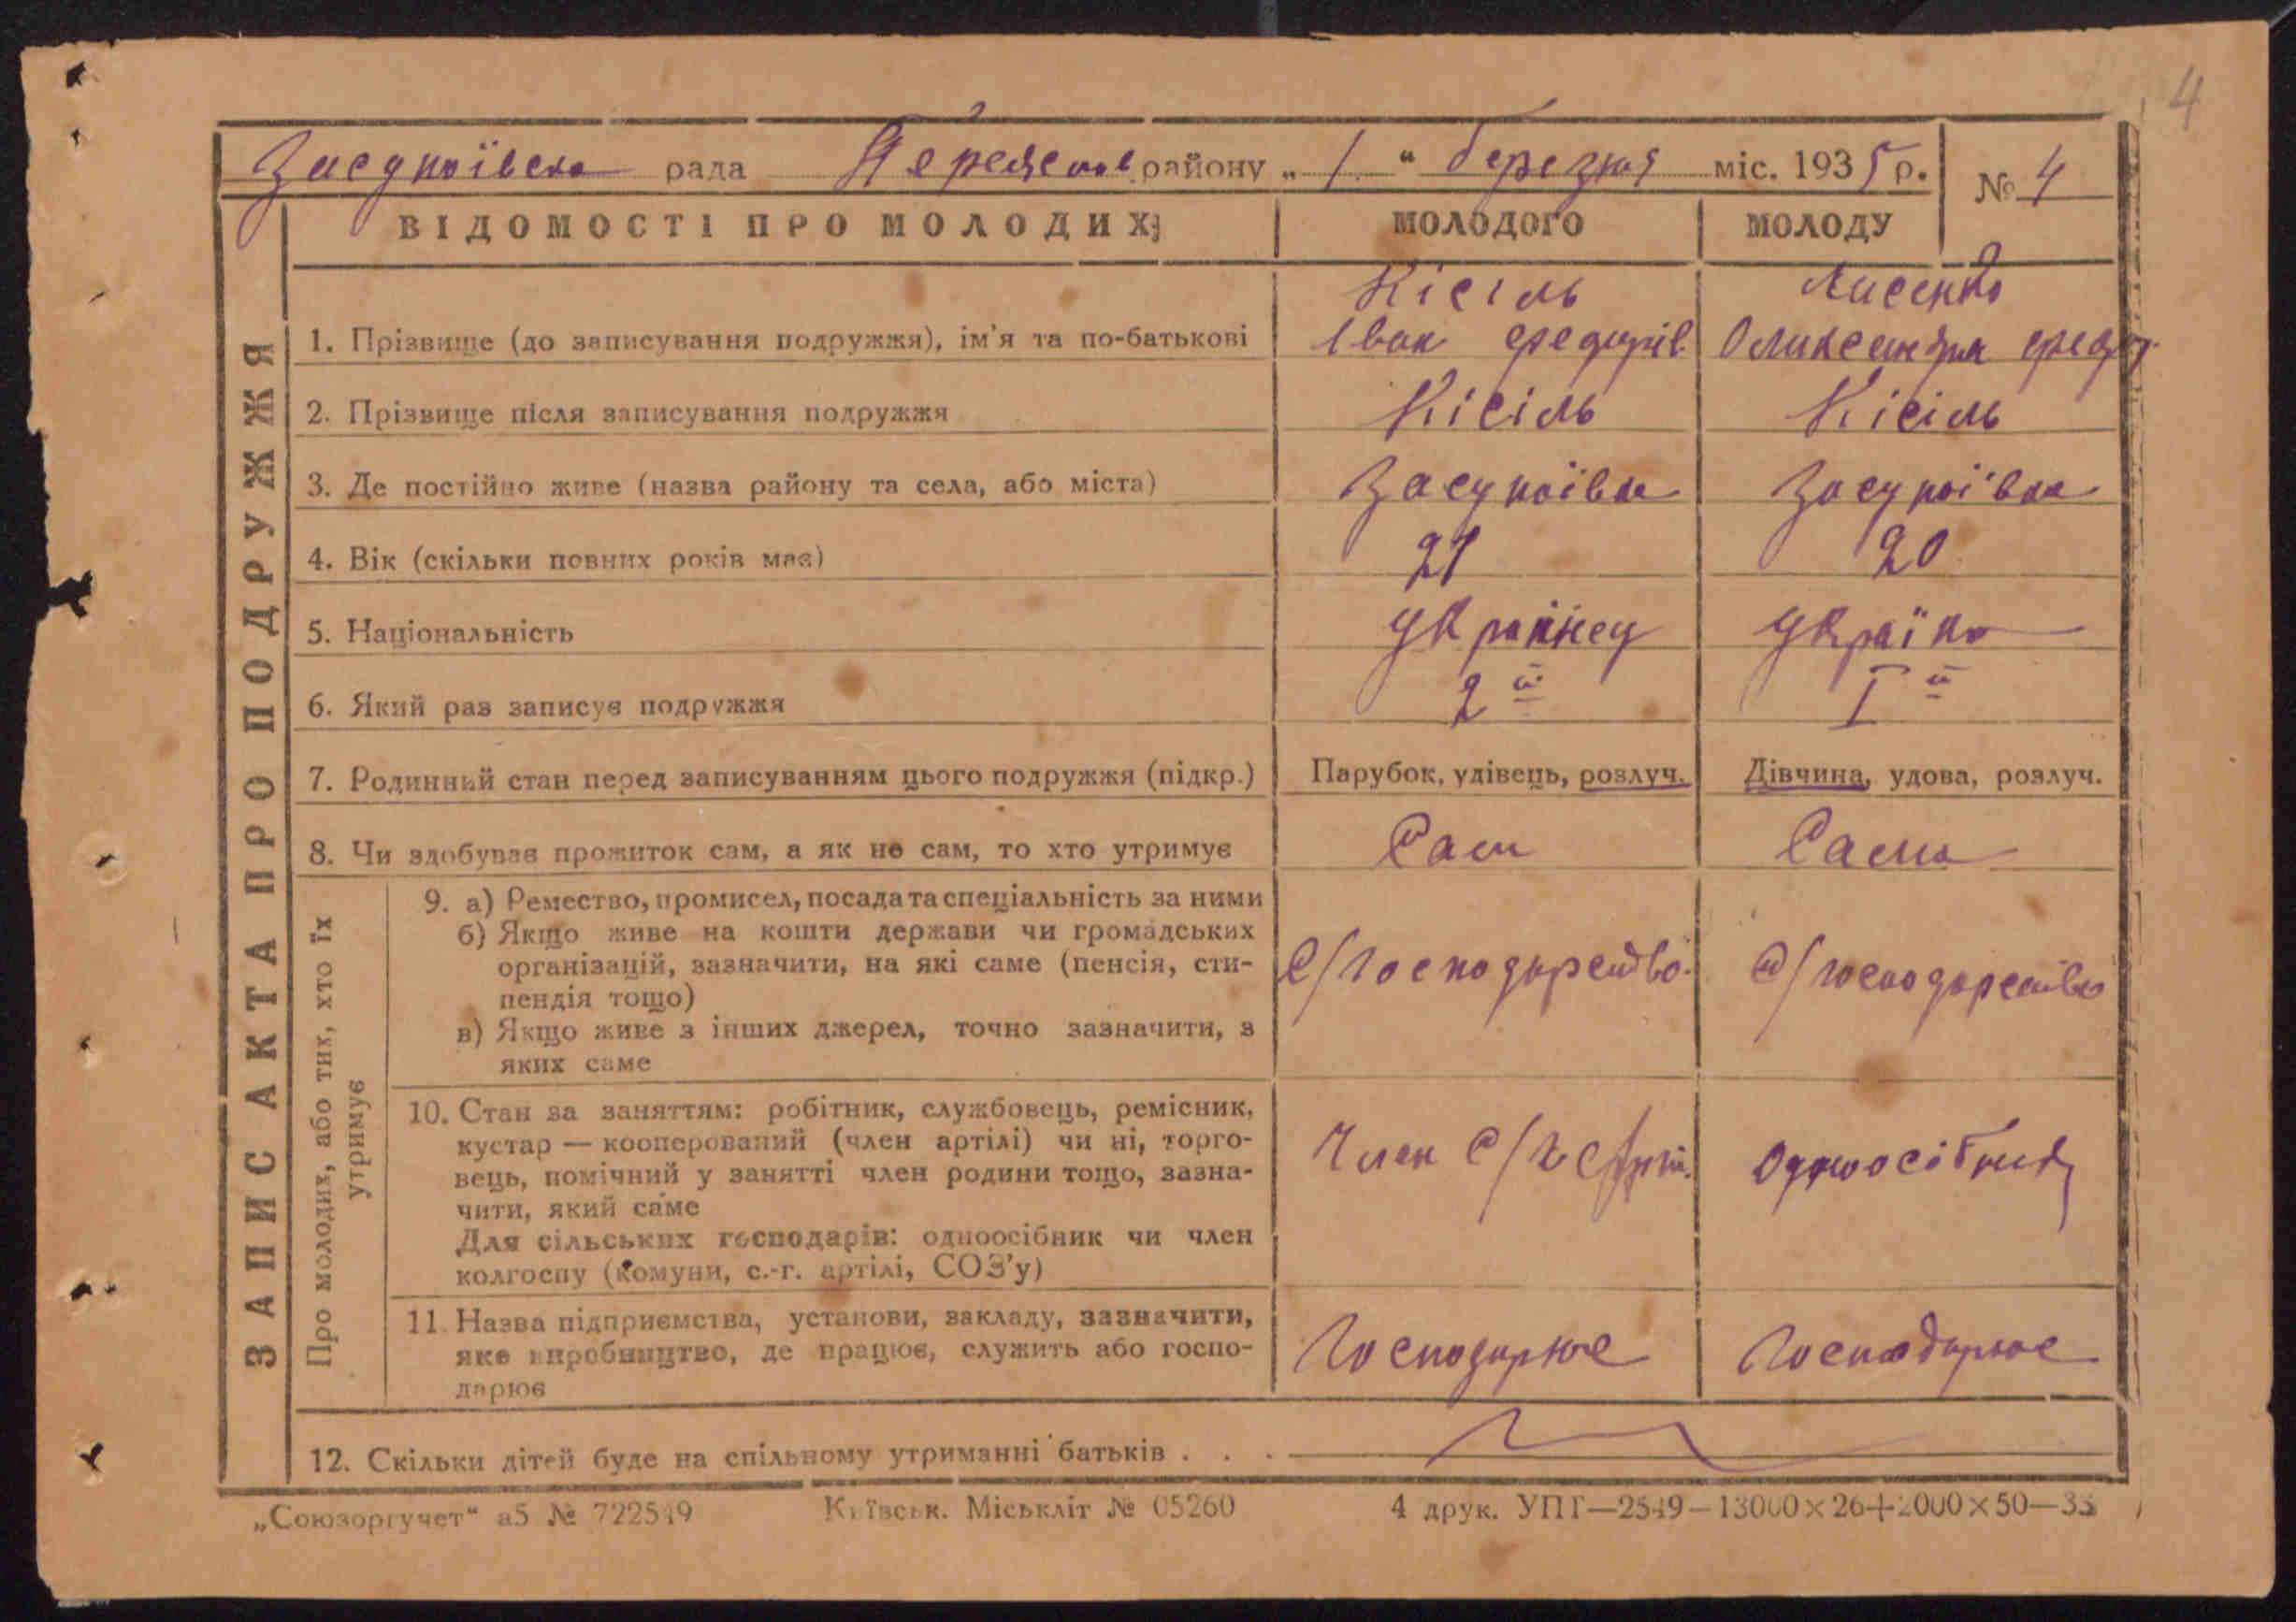 4
Засупоївська рада Переяслав району „1“ березня міс. 1935 р. № 4
ЗАПИС АКТА ПРО ПОДРУЖЖЯ
ВІДОМОСТІ ПРО МОЛОДИХ МОЛОДОГО МОЛОДУ
Кісіль Лисенко
1. Прізвище (до записування подружжя), ім'я та по-батькові Іван Федорів Олександра Федор.
2. Прізвище після записування подружжя Кісіль Кісіль
3. Де постійно живе (назва району та села, або міста) Засупоївка Засупоївка
4. Вік (скільки повних років має) 21 20
5. Національність Українец Україна
6. Який раз записує подружжя 2й Iй
7. Родинний стан перед записуванням цього подружжя (підкр.) Парубок, удівець, розлуч. Дівчина, удова, розлуч.
8. Чи здобував прожиток сам, а як не сам, то хто утримує Сам Сама
Про молодих, або тих, хто їх
утримує
9. а) Ремество, промисел, посада та спеціальність за ними
б) Якщо живе на кошти держави чи громадських
організацій, зазначити, на які саме (пенсія, сти-
пендія тощо) С/господарство. С/господарство
в) Якщо живе з інших джерел, точно зазначити, з
яких саме
10. Стан за заняттям: робітник, службовець, ремісник,
кустар — кооперований (член артілі) чи ні, торго-
вець, помічний у занятті член родини тощо, зазна- Член С/г Одноосібник
чити, який саме
Для сільських господарів: одноосібник чи член
колгоспу (комуни, с.-г. артілі, СОЗ'у)
11. Назва підприємства, установи, закладу, зазначити,
яке виробництво, де працює, служить або госпо- Господарює Господарює
дарює
12. Скільки дітей буде на спільному утриманні батьків . . .
„Союзоргучет“ а5 № 722549 Київськ. Міськліт № 05260 4 друк. УПГ—2549—13000×26+2000×50—33